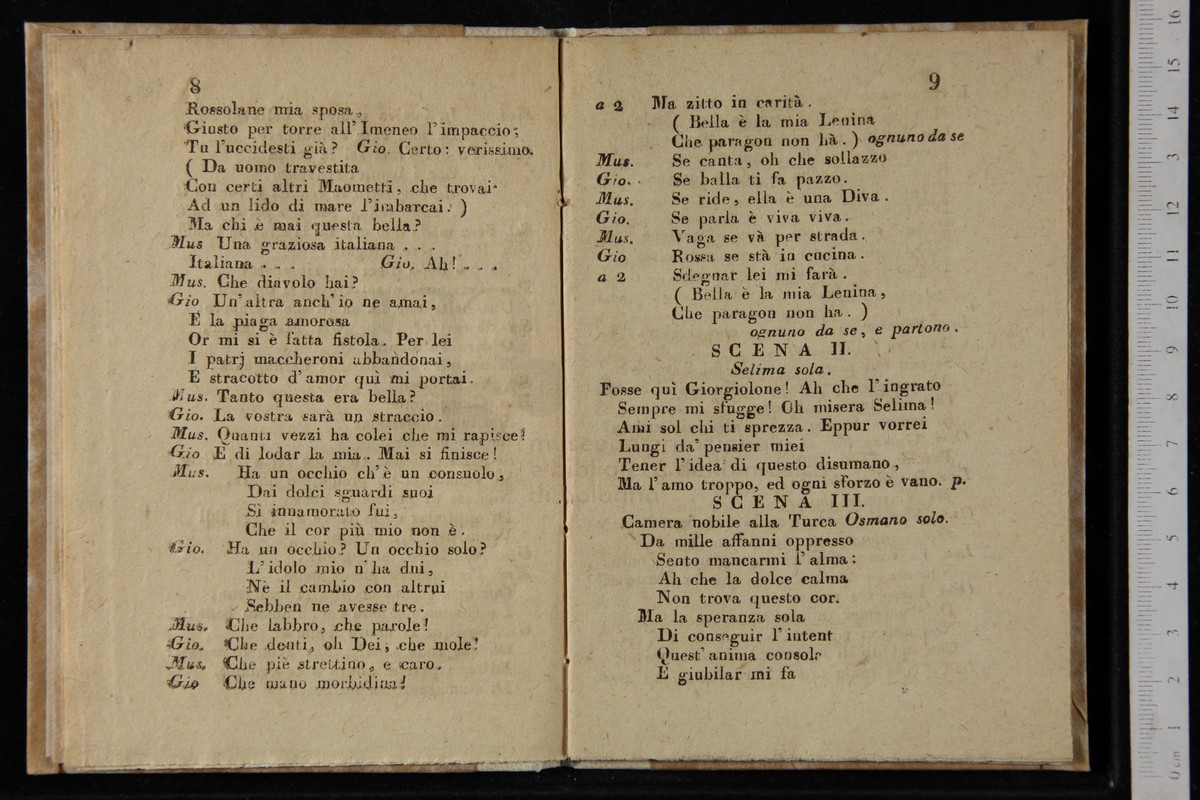 8
Rossolane mia sposa,
Giusto per torre all' Imeneo l'impaccio;
Tu l'uccidesti già? Gio. Certo: verissimo.
( Da uomo travestita
Con certi altri Maometti, che trovai
Ad un lido di mare l'imbarcai. )
Ma chi è mai questa bella?
Mus Una graziosa italiana . . .
Italiana . . . Gio. Ah! . . .
Mus. Che diavolo hai?
Gio Un' altra anch' io ne amai,
E la piaga amorosa
Or mi si è fatta fistola. Per lei
I patrj maccheroni abbandonai,
E stracotto d' amor quì mi portai.
Mus. Tanto questa era bella?
Gio. La vostra sarà un straccio.
Mus. Quanti vezzi ha colei che mi rapisce!
Gio E di lodar la mia. Mai si finisce!
Mus. Ha un occhio ch' è un consuolo,
Dai dolci sguardi suoi
Sì innamorato fui,
Che il cor più mio non è.
Gio. Ha un occhio? Un occhio solo?
L' idolo mio n' ha dui,
Nè il cambio con altrui
Sebben ne avesse tre.
Mus. Che labbro, che parole!
Gio. Che denti, oh Dei, che mole!
Mus. Che piè strettino, e caro.
Gio Che mano morbidina!
9
a 2 Ma zitto in carità.
( Bella è la mia Lenina
Che paragon non hà. ) ognuno da se
Mus. Se canta, oh che sollazzo
Gio. Se balla ti fa pazzo.
Mus. Se ride, ella è una Diva.
Gio. Se parla è viva viva.
Mus. Vaga se và per strada.
Gio Rossa se stà in cucina.
a 2 Sdegnar lei mi farà.
( Bella è la mia Lenina,
Che paragon non ha. )
ognuno da se, e partono.
SCENA II.
Selima sola.
Fosse quì Giorgiolone! Ah che l' ingrato
Sempre mi sfugge! Oh misera Selima!
Ami sol chi ti sprezza. Eppur vorrei
Lungi da' pensier miei
Tener l' idea di questo disumano,
Ma l' amo troppo, ed ogni sforzo è vano. p.
SCENA III.
Camera nobile alla Turca Osmano solo.
Da mille affanni oppresso
Sento mancarmi l' alma:
Ah che la dolce calma
Non trova questo cor.
Ma la speranza sola
Di conseguir l' intent
Quest' anima consola
E giubilar mi fa